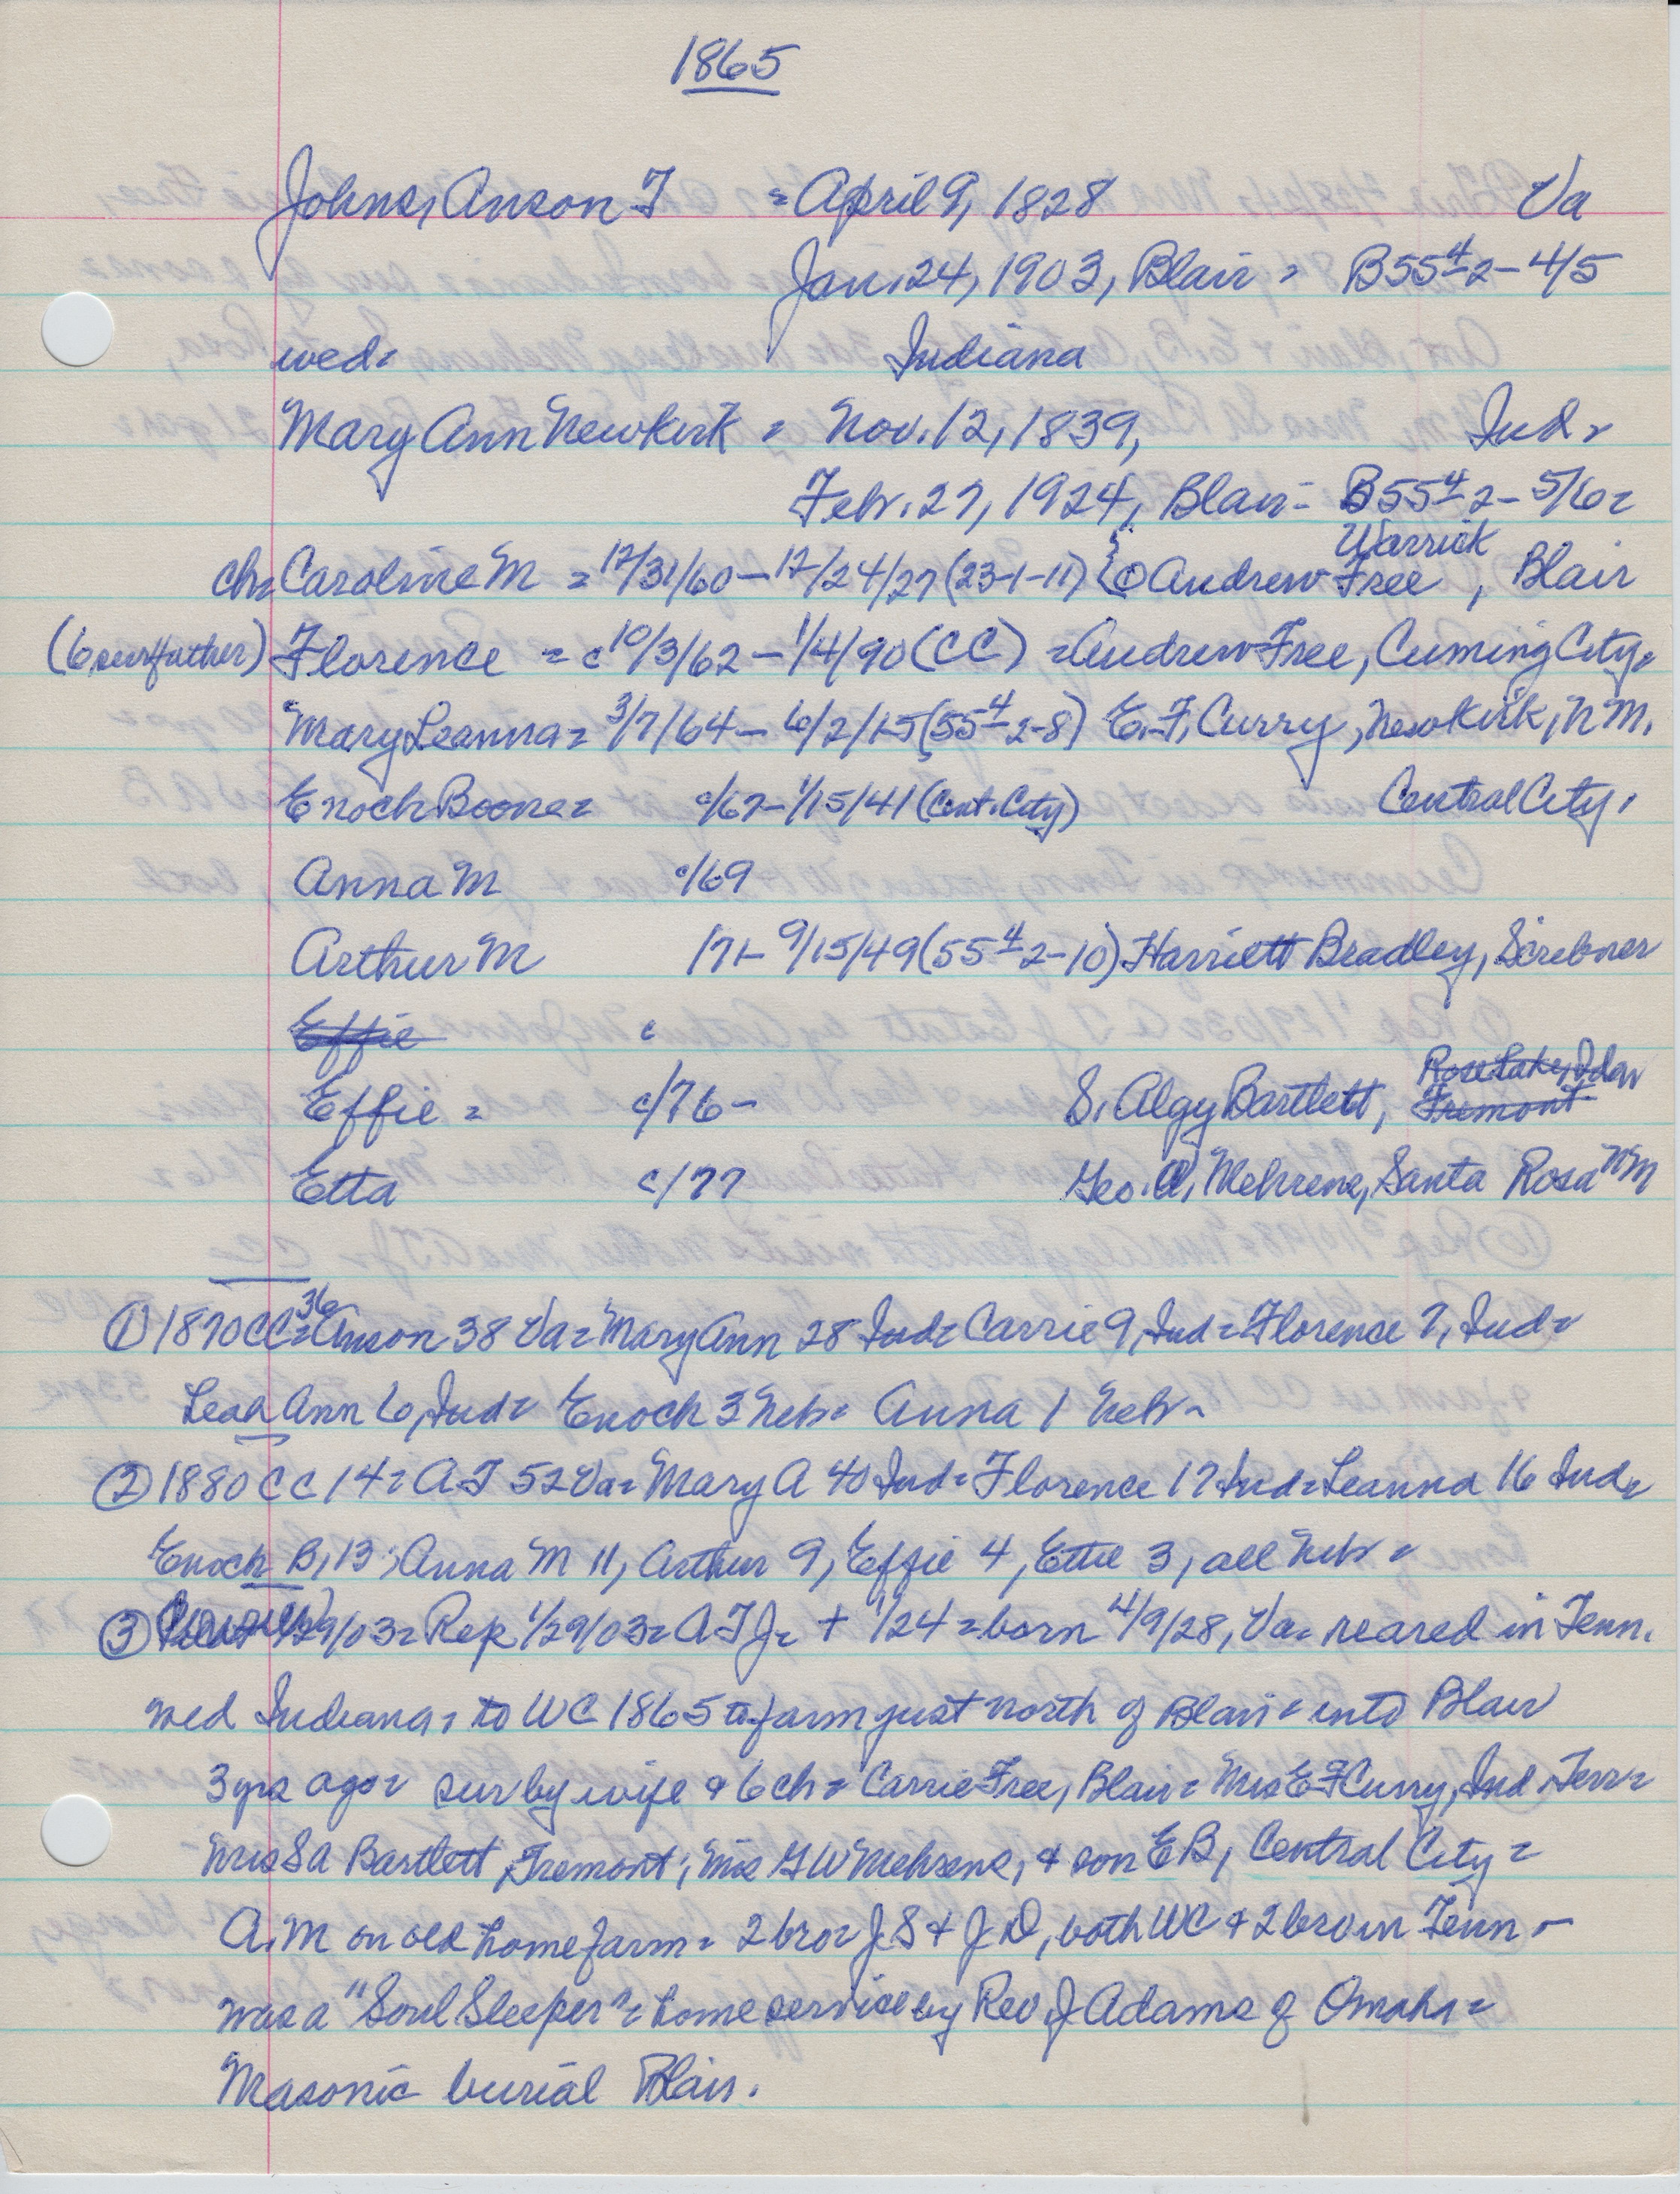 1865
Johns, Anson T = April 9, 1828 Va
Jan. 24, 1903, Blair = B55 4 2 - 4/5
wed= Indiana
Mary Ann Newkirk = Nov. 12, 1839, Ind=
Febr. 27, 1924, Blair - B55 4 2 - 5/6=
Warrick
ch= Caroline M = 12/31/60 - 12/24/27 (23-1-11) Andrew Free, Blair
(6 surv father) Florence = c 10/3/62 - 1/4/90 (CC) = Andrew Free, Cuming City=
Mary Leanna= 3/7/64 - 6/2/15 (55 4 2-8) E. F. Curry, Newkirk, N M.
Enoch Boone= c/67 - 1/15/41 (Cent. City) Central City,
Anna M c/69
Arthur M /71 - 9/15/49 (55 4 2-10) Harriett Bradley, Scribner
Effie c
Rose Lake, Idar
Effie = c/76 - S. Algy Bartlett, Fremont
Etta c/77 Geo. W. Mehrens, Santa Rosa NM
36
① 1870 CC= Anson 38 Va= Mary Ann 28 Ind= Carrie 9, Ind= Florence 7, Ind=
Leah Ann 6, Ind= Enoch 3 Neb= Anna 1 Nebr-
② 1880 CC 14= A T 52 Va= Mary A 40 Ind= Florence 17 Ind= Leanna 16 Ind=
Enoch B, 13; Anna M 11, Arthur 9, Effie 4, Ettie 3, all Nebr=
③ 1/29/03= Rep 1/29/03= A T J= + 1/24= born 4/9/28, Va= reared in Tenn.
wed Indiana, to WC 1865 to farm just north of Blair= into Blair
3 yrs ago= sur by wife & 6 ch= Carrie Free, Blair= Mrs E F Curry, Ind. Terr=
Mrs S A Bartlett, Fremont; Mrs G W Mehrens, & son E B, Central City=
A. M on old home farm= 2 bro= J. S & J D, both WC & 2 bro in Tenn -
was a "Soul Sleeper"= home service by Rev J Adams of Omaha=
Masonic burial Blair.